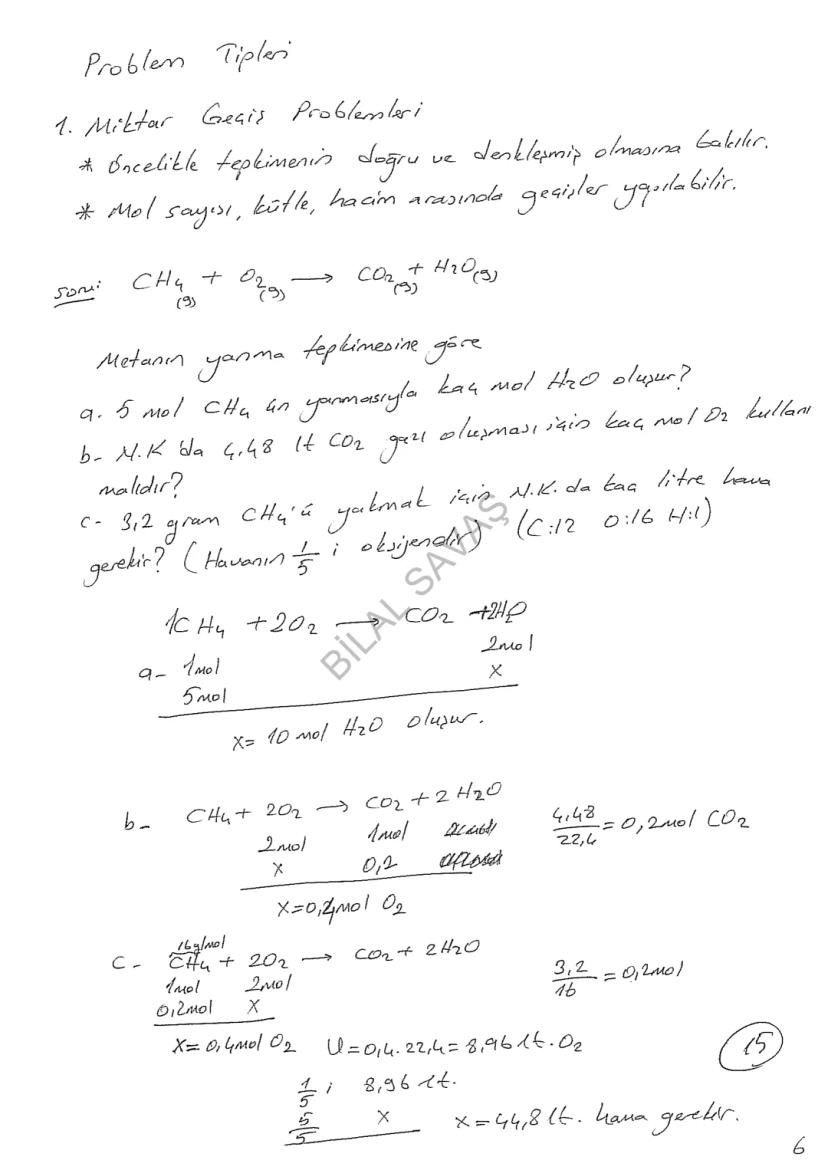 Problem Tipleri
1. Miktar Geçiş Problemleri
* Öncelikle tepkimenin doğru ve denkleşmiş olmasına bakılır.
* Mol sayısı, kütle, hacim arasında geçişler yapılabilir.
soru: CH4(g) + O2(g) → CO2(g) + H2O(g)
Metanın yanma tepkimesine göre
a. 5 mol CH4 ün yanmasıyla kaç mol H2O oluşur?
b- N.K 'da 4,48 lt CO2 gazı oluşması için kaç mol O2 kullanı
malıdır?
c- 3,2 gram CH4'ü yakmak için N.K. da kaç litre hava
gerekir? (Havanın 1/5 i oksijendir) (C:12 O:16 H:1)
BİLAL SAVAŞ
1CH4 + 2O2 → CO2 + 2H2O
a- 1mol 2mol
5mol x
x= 10 mol H2O oluşur.
b- CH4 + 2O2 → CO2 + 2H2O 4,48/22,4 = 0,2mol CO2
2mol 1mol
x 0,2
x=0,4mol O2
16g/mol
c- CH4 + 2O2 → CO2 + 2H2O 3,2/16 = 0,2mol
1mol 2mol
0,2mol x
x= 0,4mol O2 V=0,4.22,4= 8,96 lt. O2
15
1/5 i 8,96 lt.
5/5 x x=44,8 lt. hava gerekir.
6